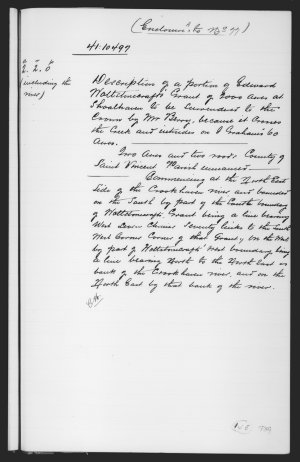 (Enclosure to No 77)
41.10497
a r p
2. 2. 0
(including the
river)
Description of a portion of Edward
Wollstonecraft's Grant of 2000 Acres at
Shoalhaven to be surrendered to the
Crown by Mr Berry, because it crosses
the Creek and intrudes on J Graham's 60
Acres.
Two Acres and two roods County of
Saint Vincent Parish unnamed
Commencing at the North East
side of the Crookhaven river and bounded
on the South by part of the South boundary
of Wollstonecraft Grant being a line bearing
West chains seventy links to the South
West Corner of that Grant; On the West
by part of Wollstonecraft West boundary being
a line bearing North to the North East
bank of the Crookhaven river, and on the
North East by that bank of the river.